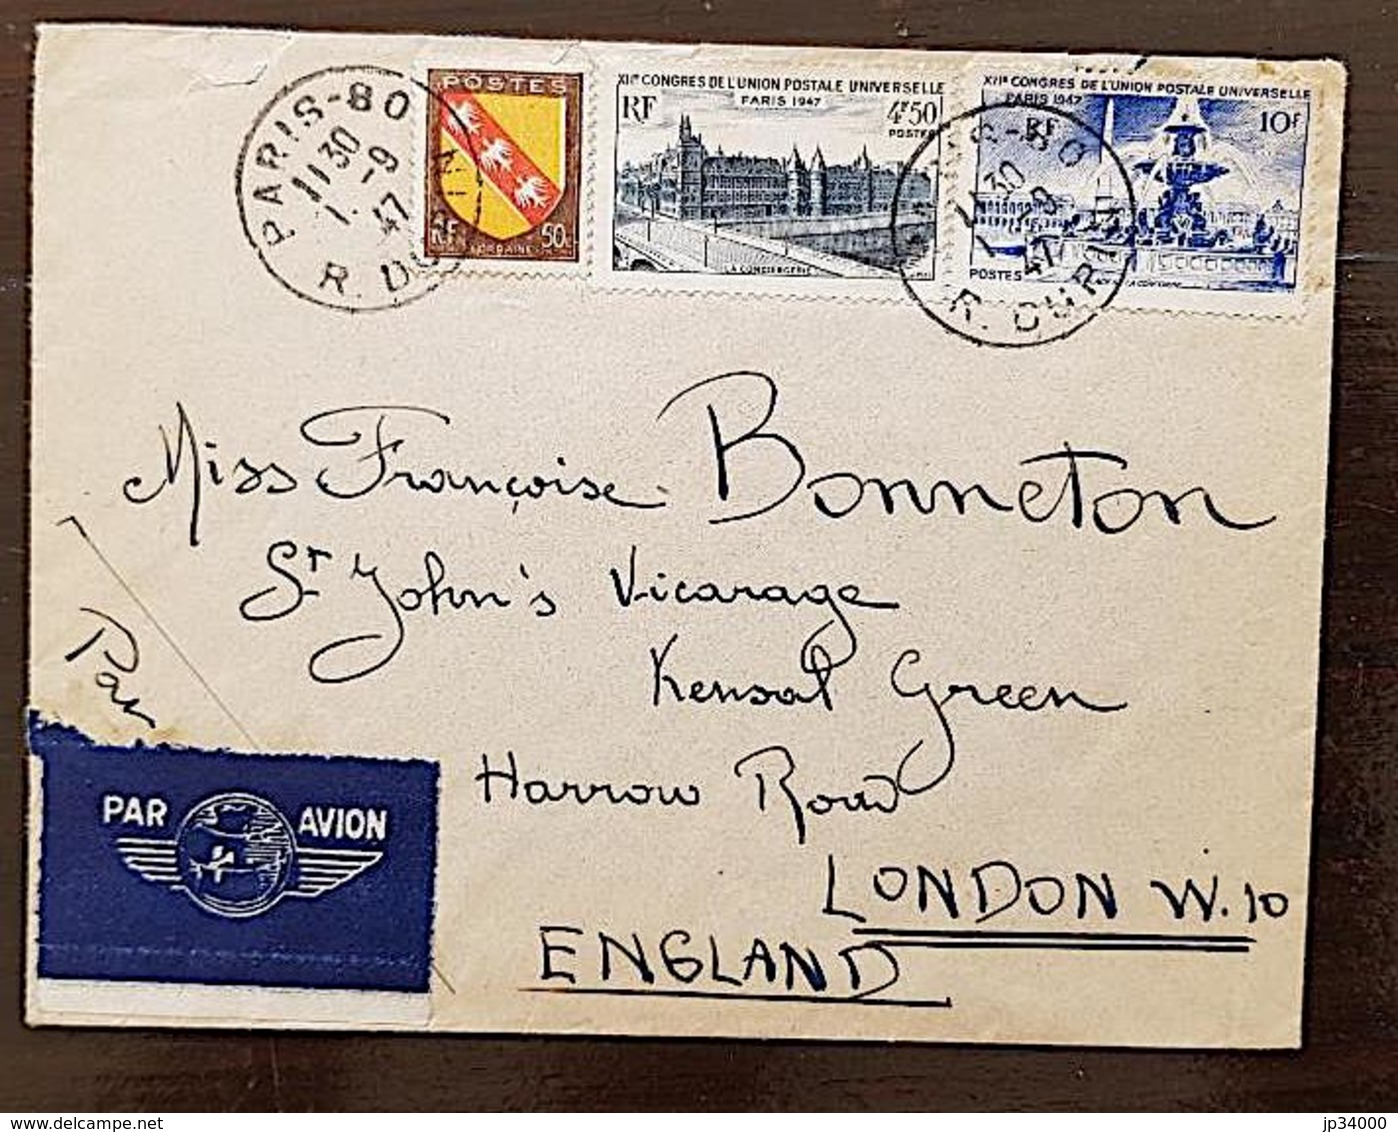 POSTES
RF
LORRAINE
50c
XIIe CONGRES DE L'UNION POSTALE UNIVERSELLE
PARIS 1947
RF
4F50
POSTES
LA CONCIERGERIE
XIIe CONGRES DE L'UNION POSTALE UNIVERSELLE
PARIS 1947
RF
10F
POSTES
PARIS-80
11 30
1. -9
47
R. DU
11 30
47
R. DU
Miss Françoise Bonneton
St John's Vicarage
Kensal Green
Harrow Road
LONDON W.10
ENGLAND
Par
PAR AVION
jp34000